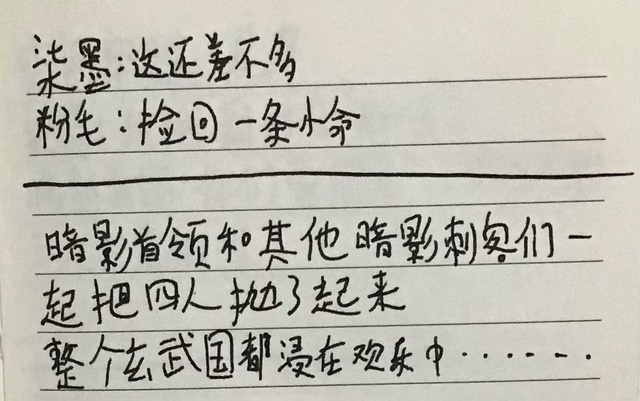 染墨:这还差不多
粉毛:捡回一条小命
暗影首领和其他暗影刺客们一
起把四人抛了起来
整个玄武国都浸在欢乐中······